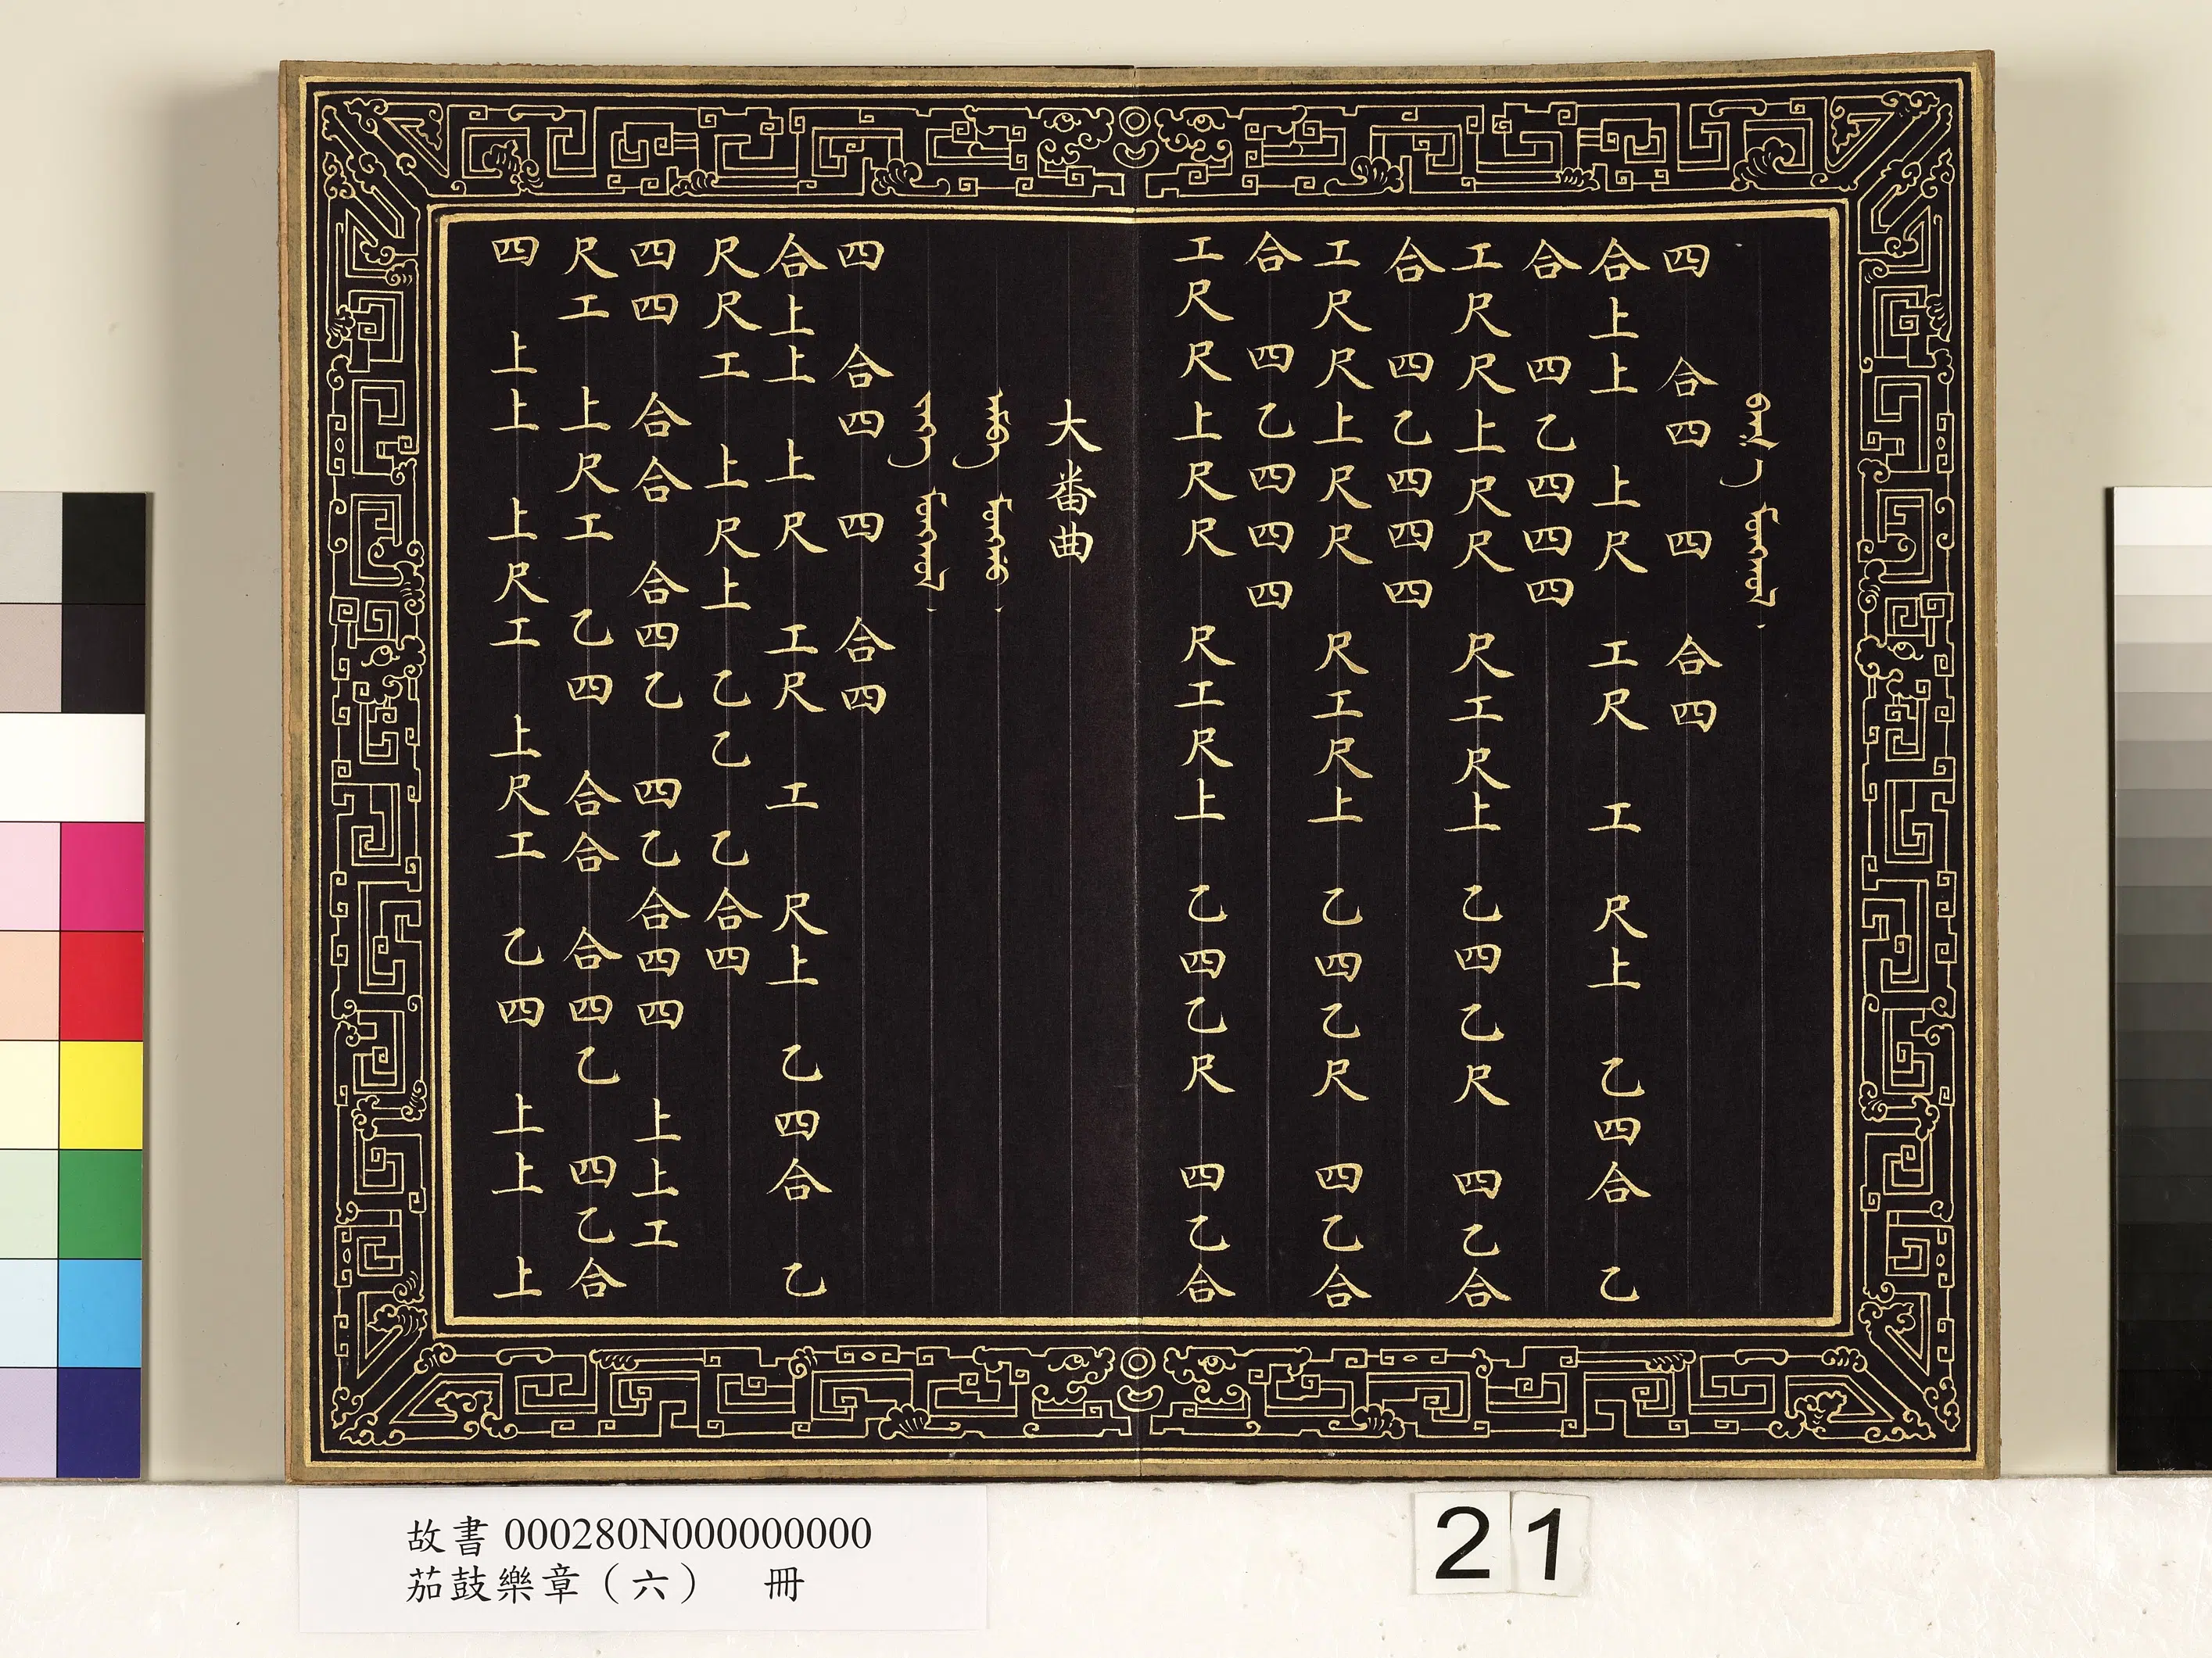 四 合四 四 合四
合上上 上尺 工尺 工 尺上 乙四合 乙
合 四乙四四四
工尺尺上尺尺 尺工尺上 乙四乙尺 四乙合
合 四乙四四四
工尺尺上尺尺 尺工尺上 乙四乙尺 四乙合
合 四乙四四四
工尺尺上尺尺 尺工尺上 乙四乙尺 四乙合
大番曲
四 合四 四 合四
合上上 上尺 工尺 工 尺上 乙四合 乙
尺尺工 上尺上 乙乙 乙合四
四四 合合 合四乙 四乙合四四 上上工
尺工 上尺工 乙四 合合 合四乙 四乙合
四 上上 上尺工 上尺工 乙四 上上 上
故書 000280N000000000
茄鼓樂章（六） 冊
21